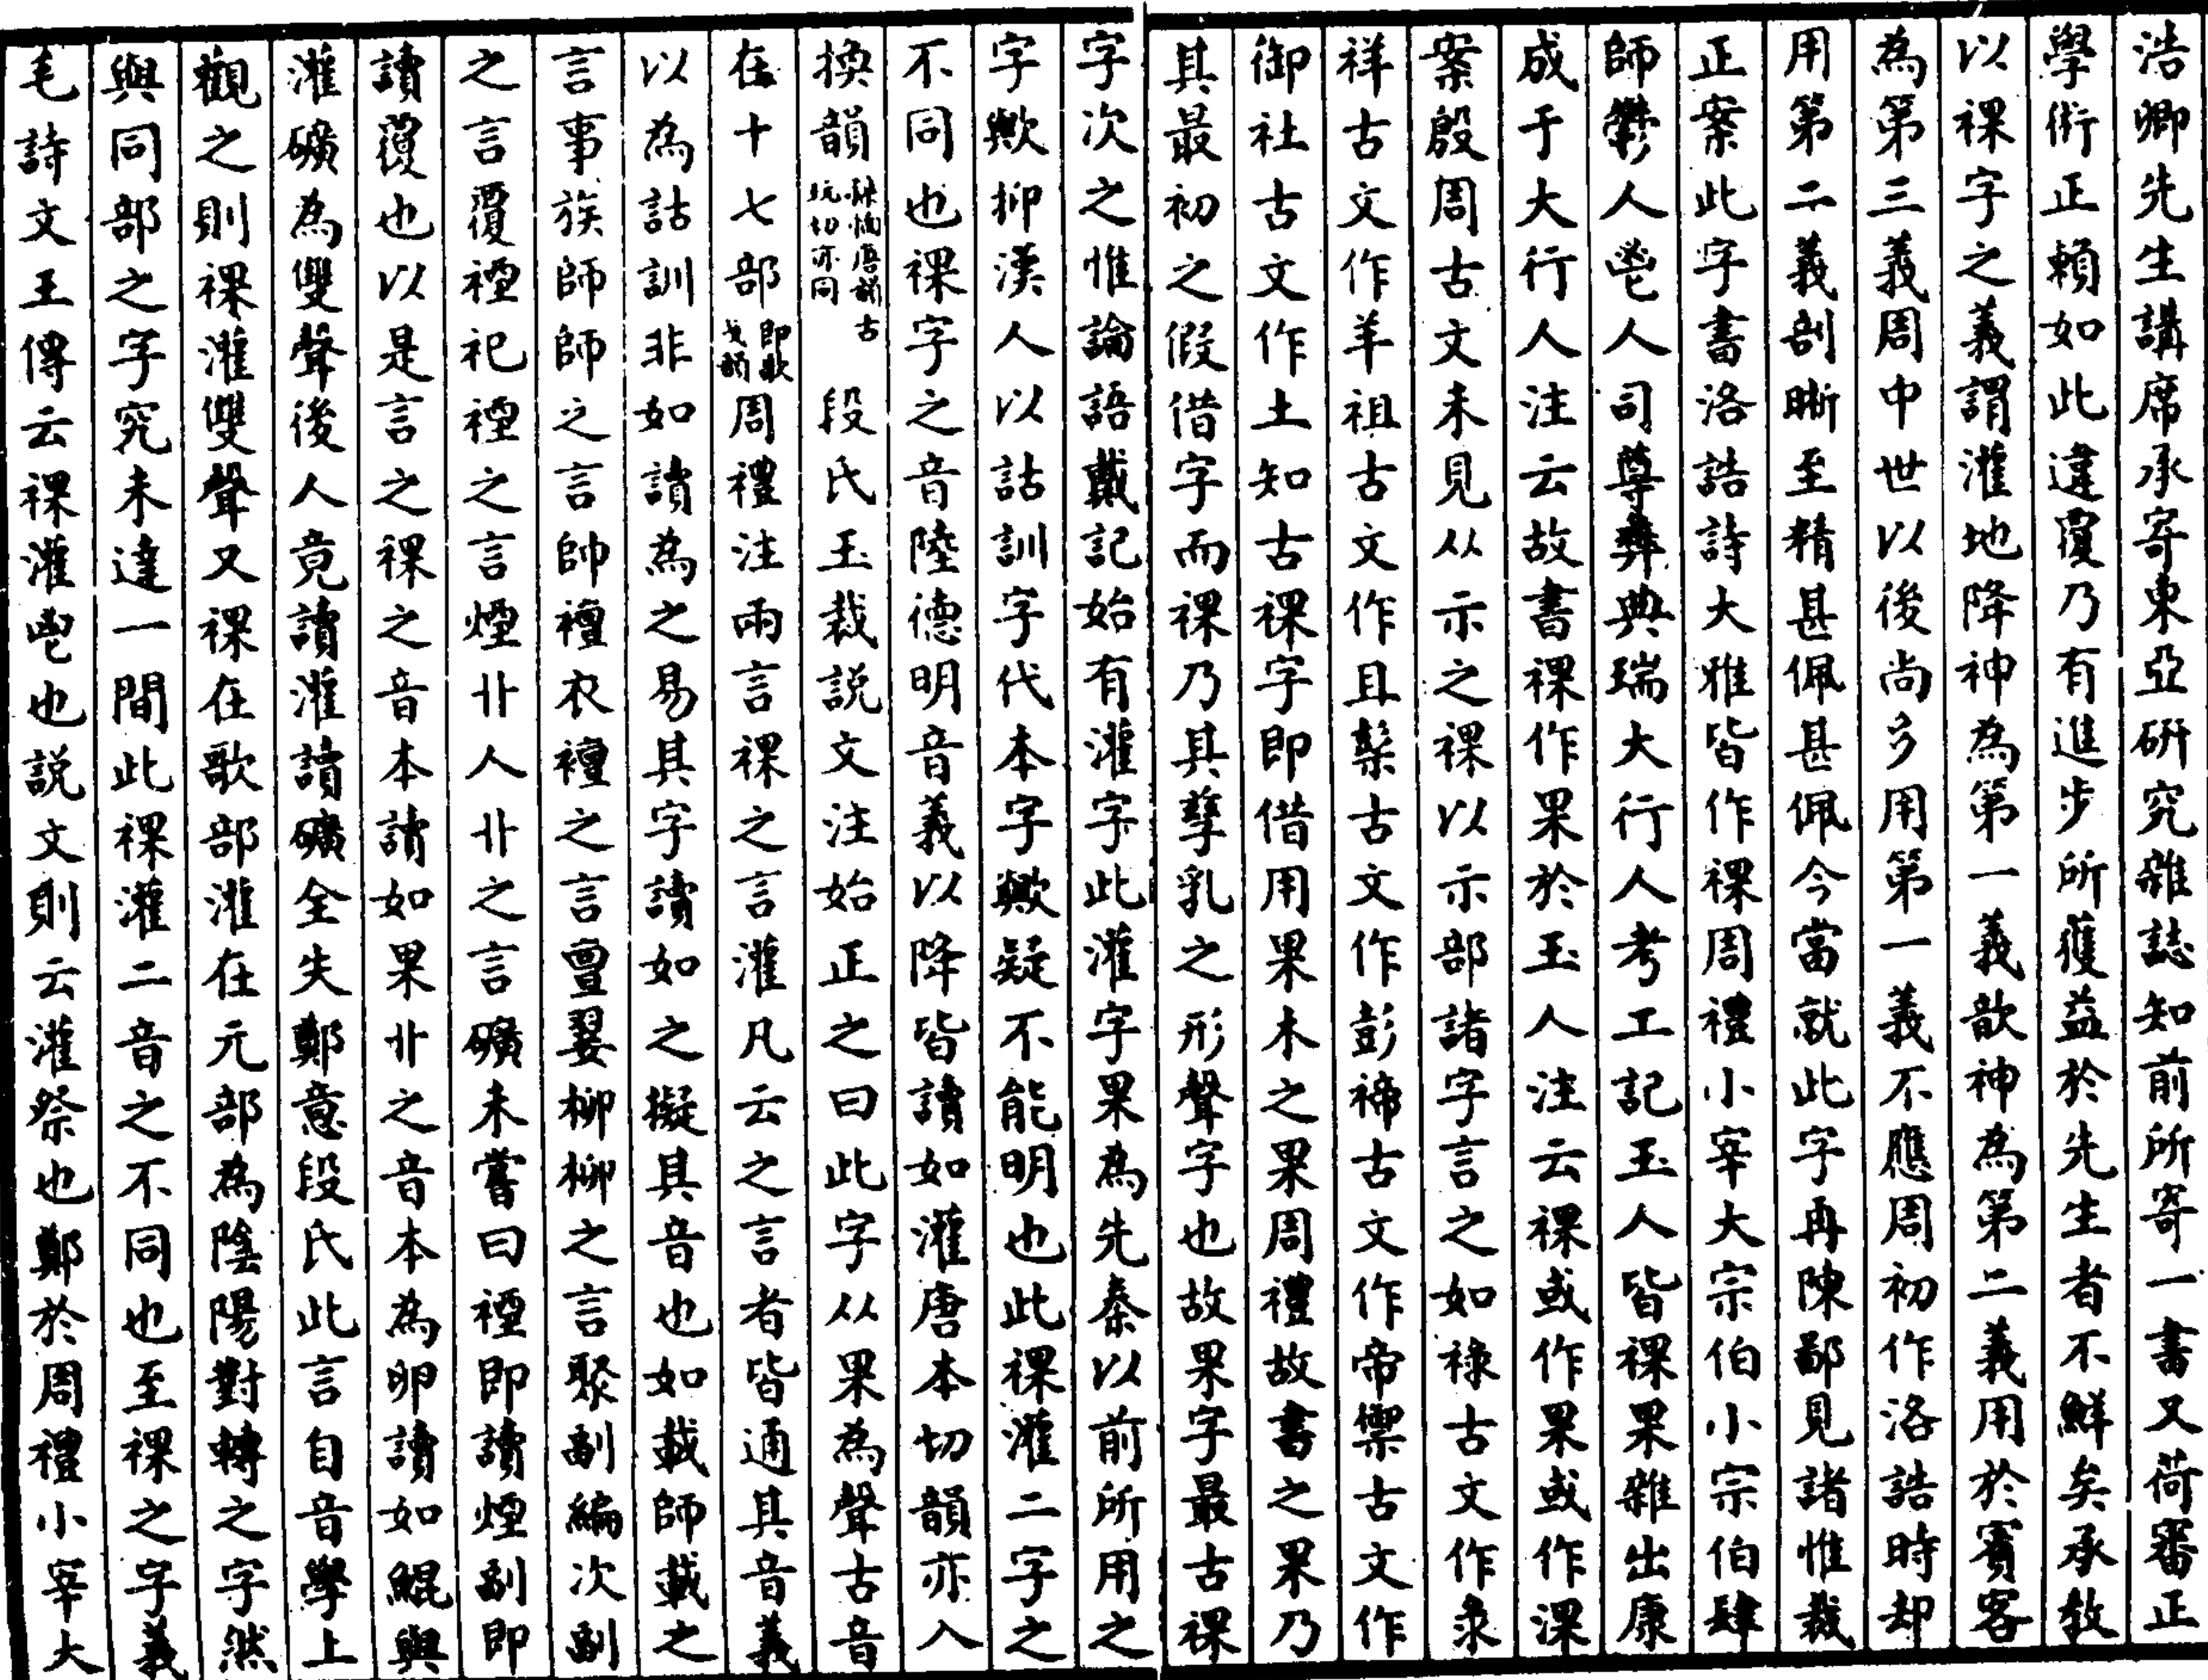 浩卿先生講席承寄東亞研究雜誌知前所寄一書又荷審正
學術正賴如此違覆乃有進步所獲益於先生者不鮮矣承教
以祼字之義謂灌地降神為第一義歆神為第二義用於賓客
為第三義周中世以後尚多用第一義不應周初作洛誥時却
用第二義剖晰至精甚佩甚佩今當就此字再陳鄙見諸惟裁
正案此字書洛誥詩大雅皆作祼周禮小宰大宗伯小宗伯肆
師鬱人鬯人司尊彝典瑞大行人考工記玉人皆祼果雜出康
成于大行人注云故書祼作果於玉人注云祼或作果或作淉
案殷周古文未見从示之祼以示部諸字言之如祿古文作彔
祥古文作羊祖古文作且䄏古文作彭禘古文作帝禦古文作
御社古文作土知古祼字即借用果木之果周禮故書之果乃
其最初之假借字而祼乃其孳乳之形聲字也故果字最古祼
字次之惟論語戴記始有灌字此灌字果為先秦以前所用之
字歟抑漢人以詁訓字代本字歟疑不能明也此祼灌二字之
不同也祼字之音陸德明音義以降皆讀如灌唐本切韻亦入
換韻孫愐唐韻古玩切亦同段氏玉裁說文注始正之曰此字从果為聲古音
在十七部即歌戈韻周禮注兩言祼之言灌凡云之言者皆通其音義
以為詁訓非如讀為之易其字讀如之擬其音也如載師載之
言事族師師之言帥襢衣襢之言亶翣柳柳之言聚副編次副
之言覆禋祀禋之言煙卝人卝之言礦未嘗曰禋即讀煙副即
讀覆也以是言之祼之音本讀如果卝之音本為卵讀如鯤與
灌礦為雙聲後人竟讀灌讀礦全失鄭意段氏此言自音學上
觀之則祼灌雙聲又祼在歌部灌在元部為陰陽對轉之字然
與同部之字究未達一間此祼灌二音之不同也至祼之字義
毛詩文王傳云祼灌鬯也說文則云灌祭也鄭於周禮小宰大